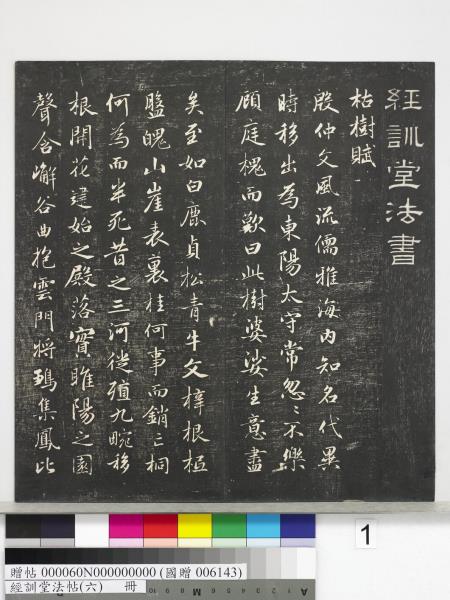 經訓堂法書
枯樹賦
殷仲文風流儒雅海內知名代異
時移出為東陽太守常忽〻不樂
顧庭槐而歎曰此樹婆娑生意盡
矣至如白鹿貞松青牛文梓根柢
盤魄山崖表裏桂何事而銷亡桐
何為而半死昔之三河徙殖九畹移
根開花建始之殿落實睢陽之園
聲含嶰谷曲抱雲門將鶵集鳳比
1
贈帖 000060N000000000 (國贈 006143)
經訓堂法帖(六) 冊